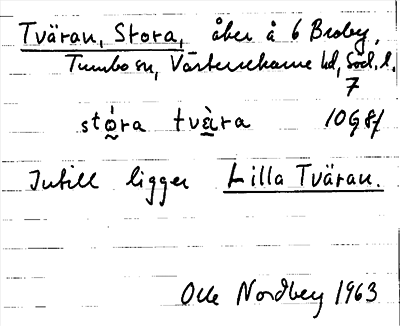 Tväran, Stora, åker å 6 Broby,
Tumbo sn, Västerrekarne hd, Söd. l.
7
stó̰ra tvɛ̀ra 10G8f
Intill ligger Lilla Tväran.
Olle Nordberg 1963